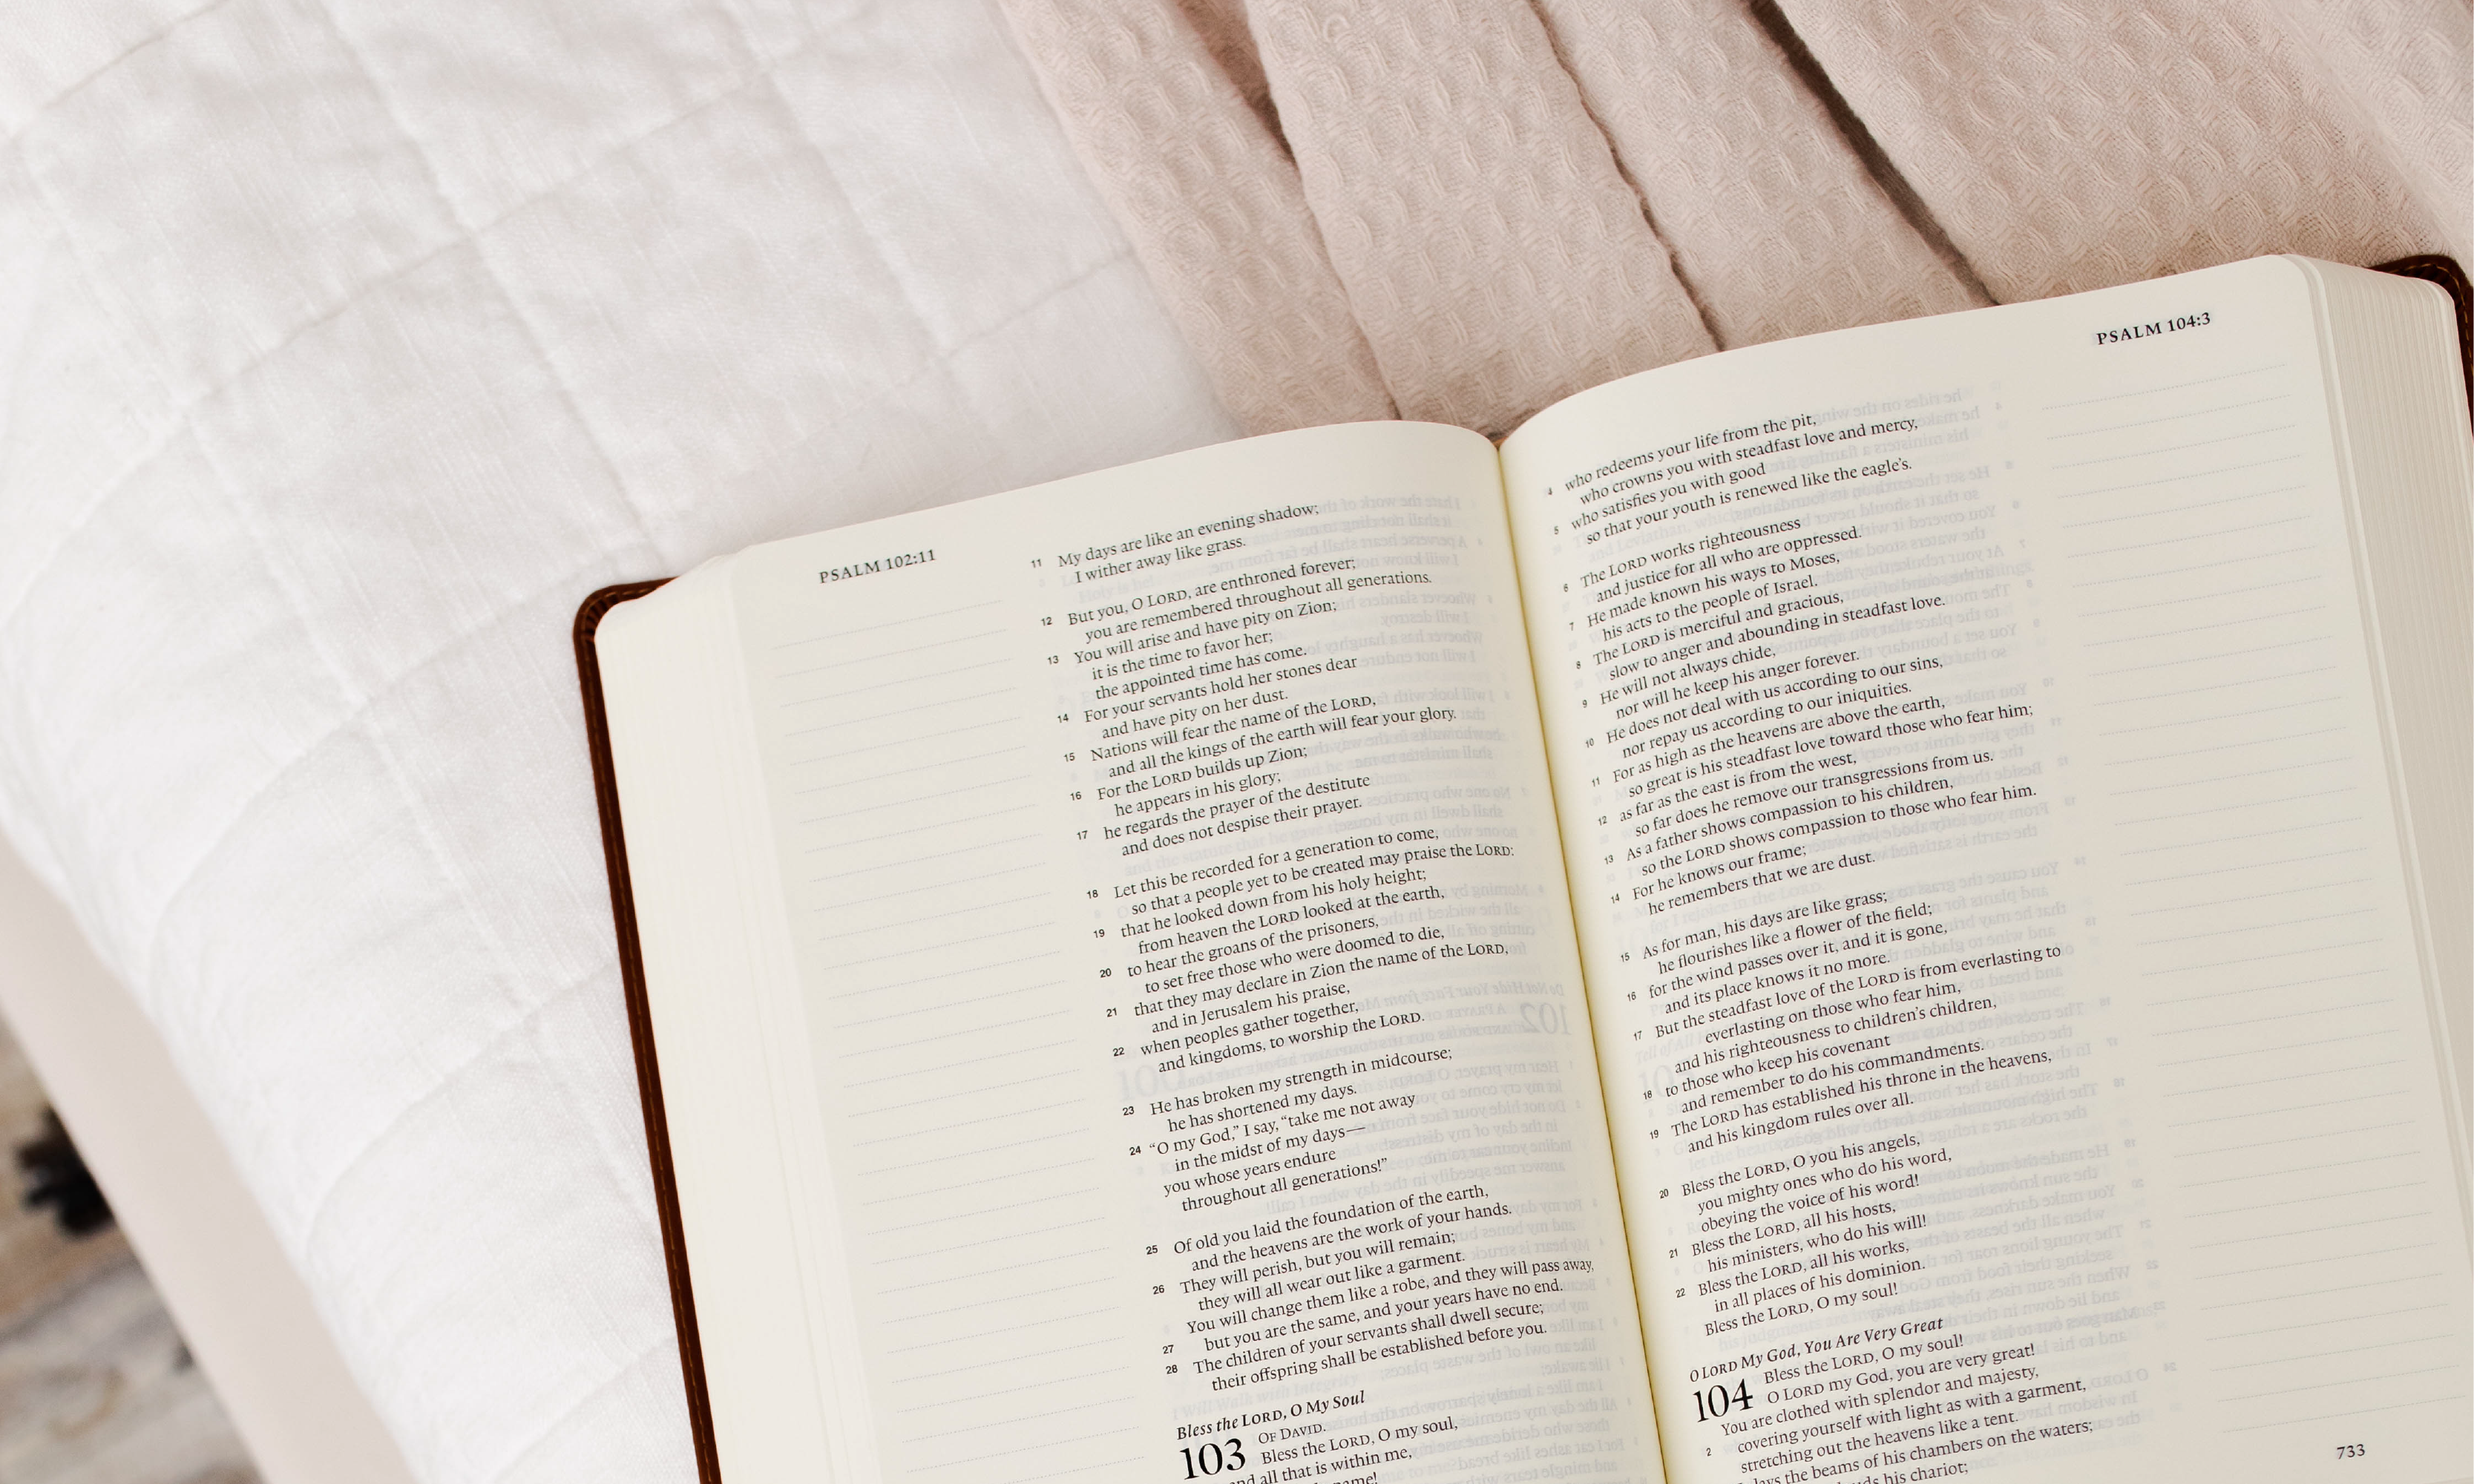 PSALM 102:11
11 My days are like an evening shadow;
I wither away like grass.
12 But you, O LORD, are enthroned forever;
you are remembered throughout all generations.
13 You will arise and have pity on Zion;
it is the time to favor her;
the appointed time has come.
14 For your servants hold her stones dear
and have pity on her dust.
15 Nations will fear the name of the LORD,
and all the kings of the earth will fear your glory.
16 For the LORD builds up Zion;
he appears in his glory;
17 he regards the prayer of the destitute
and does not despise their prayer.
18 Let this be recorded for a generation to come,
so that a people yet to be created may praise the LORD:
19 that he looked down from his holy height;
from heaven the LORD looked at the earth,
20 to hear the groans of the prisoners,
to set free those who were doomed to die,
21 that they may declare in Zion the name of the LORD,
and in Jerusalem his praise,
22 when peoples gather together,
and kingdoms, to worship the LORD.
23 He has broken my strength in midcourse;
he has shortened my days.
24 “O my God,” I say, “take me not away
in the midst of my days—
you whose years endure
throughout all generations!”
25 Of old you laid the foundation of the earth,
and the heavens are the work of your hands.
26 They will perish, but you will remain;
they will all wear out like a garment.
You will change them like a robe, and they will pass away,
27 but you are the same, and your years have no end.
28 The children of your servants shall dwell secure;
their offspring shall be established before you.
Bless the LORD, O My Soul
103 OF DAVID.
Bless the LORD, O my soul,
and all that is within me,
name!
PSALM 104:3
4 who redeems your life from the pit,
who crowns you with steadfast love and mercy,
5 who satisfies you with good
so that your youth is renewed like the eagle's.
6 The LORD works righteousness
and justice for all who are oppressed.
7 He made known his ways to Moses,
his acts to the people of Israel.
8 The LORD is merciful and gracious,
slow to anger and abounding in steadfast love.
9 He will not always chide,
nor will he keep his anger forever.
10 He does not deal with us according to our sins,
nor repay us according to our iniquities.
11 For as high as the heavens are above the earth,
so great is his steadfast love toward those who fear him;
12 as far as the east is from the west,
so far does he remove our transgressions from us.
13 As a father shows compassion to his children,
so the LORD shows compassion to those who fear him.
14 For he knows our frame;
he remembers that we are dust.
15 As for man, his days are like grass;
he flourishes like a flower of the field;
16 for the wind passes over it, and it is gone,
and its place knows it no more.
17 But the steadfast love of the LORD is from everlasting to
everlasting on those who fear him,
and his righteousness to children's children,
18 to those who keep his covenant
and remember to do his commandments.
19 The LORD has established his throne in the heavens,
and his kingdom rules over all.
20 Bless the LORD, O you his angels,
you mighty ones who do his word,
obeying the voice of his word!
21 Bless the LORD, all his hosts,
his ministers, who do his will!
22 Bless the LORD, all his works,
in all places of his dominion.
Bless the LORD, O my soul!
O LORD My God, You Are Very Great
104 Bless the LORD, O my soul!
O LORD my God, you are very great!
You are clothed with splendor and majesty,
2 covering yourself with light as with a garment,
stretching out the heavens like a tent.
lays the beams of his chambers on the waters;
his chariot;
733